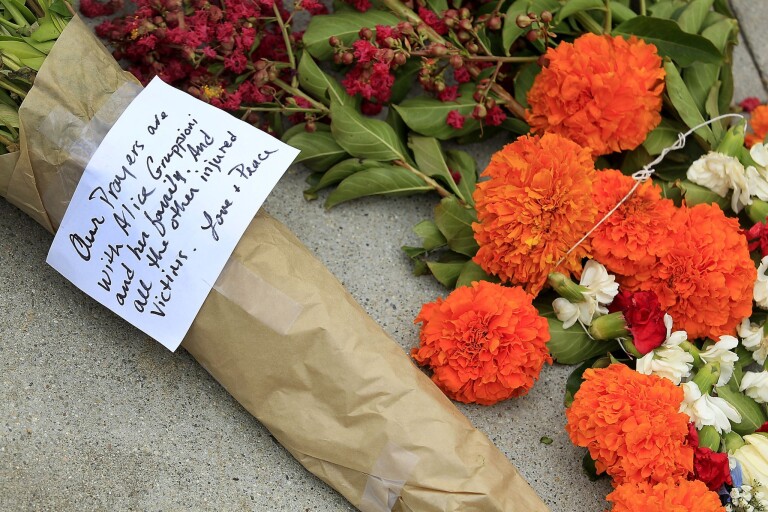 Our Prayers are
with Alice Gruppioni
and her family. And
all the other injured
Victims. Love + Peace